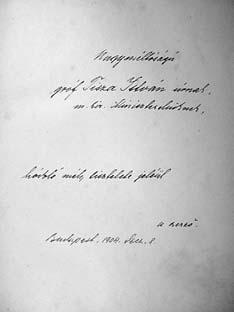 Nagyméltóságú
gróf Tisza István úrnak,
m. kir. Miniszterelnöknek,
hódoló mély tisztelete jeléül
a szerző.
Budapest. 1904. Decz. 8.